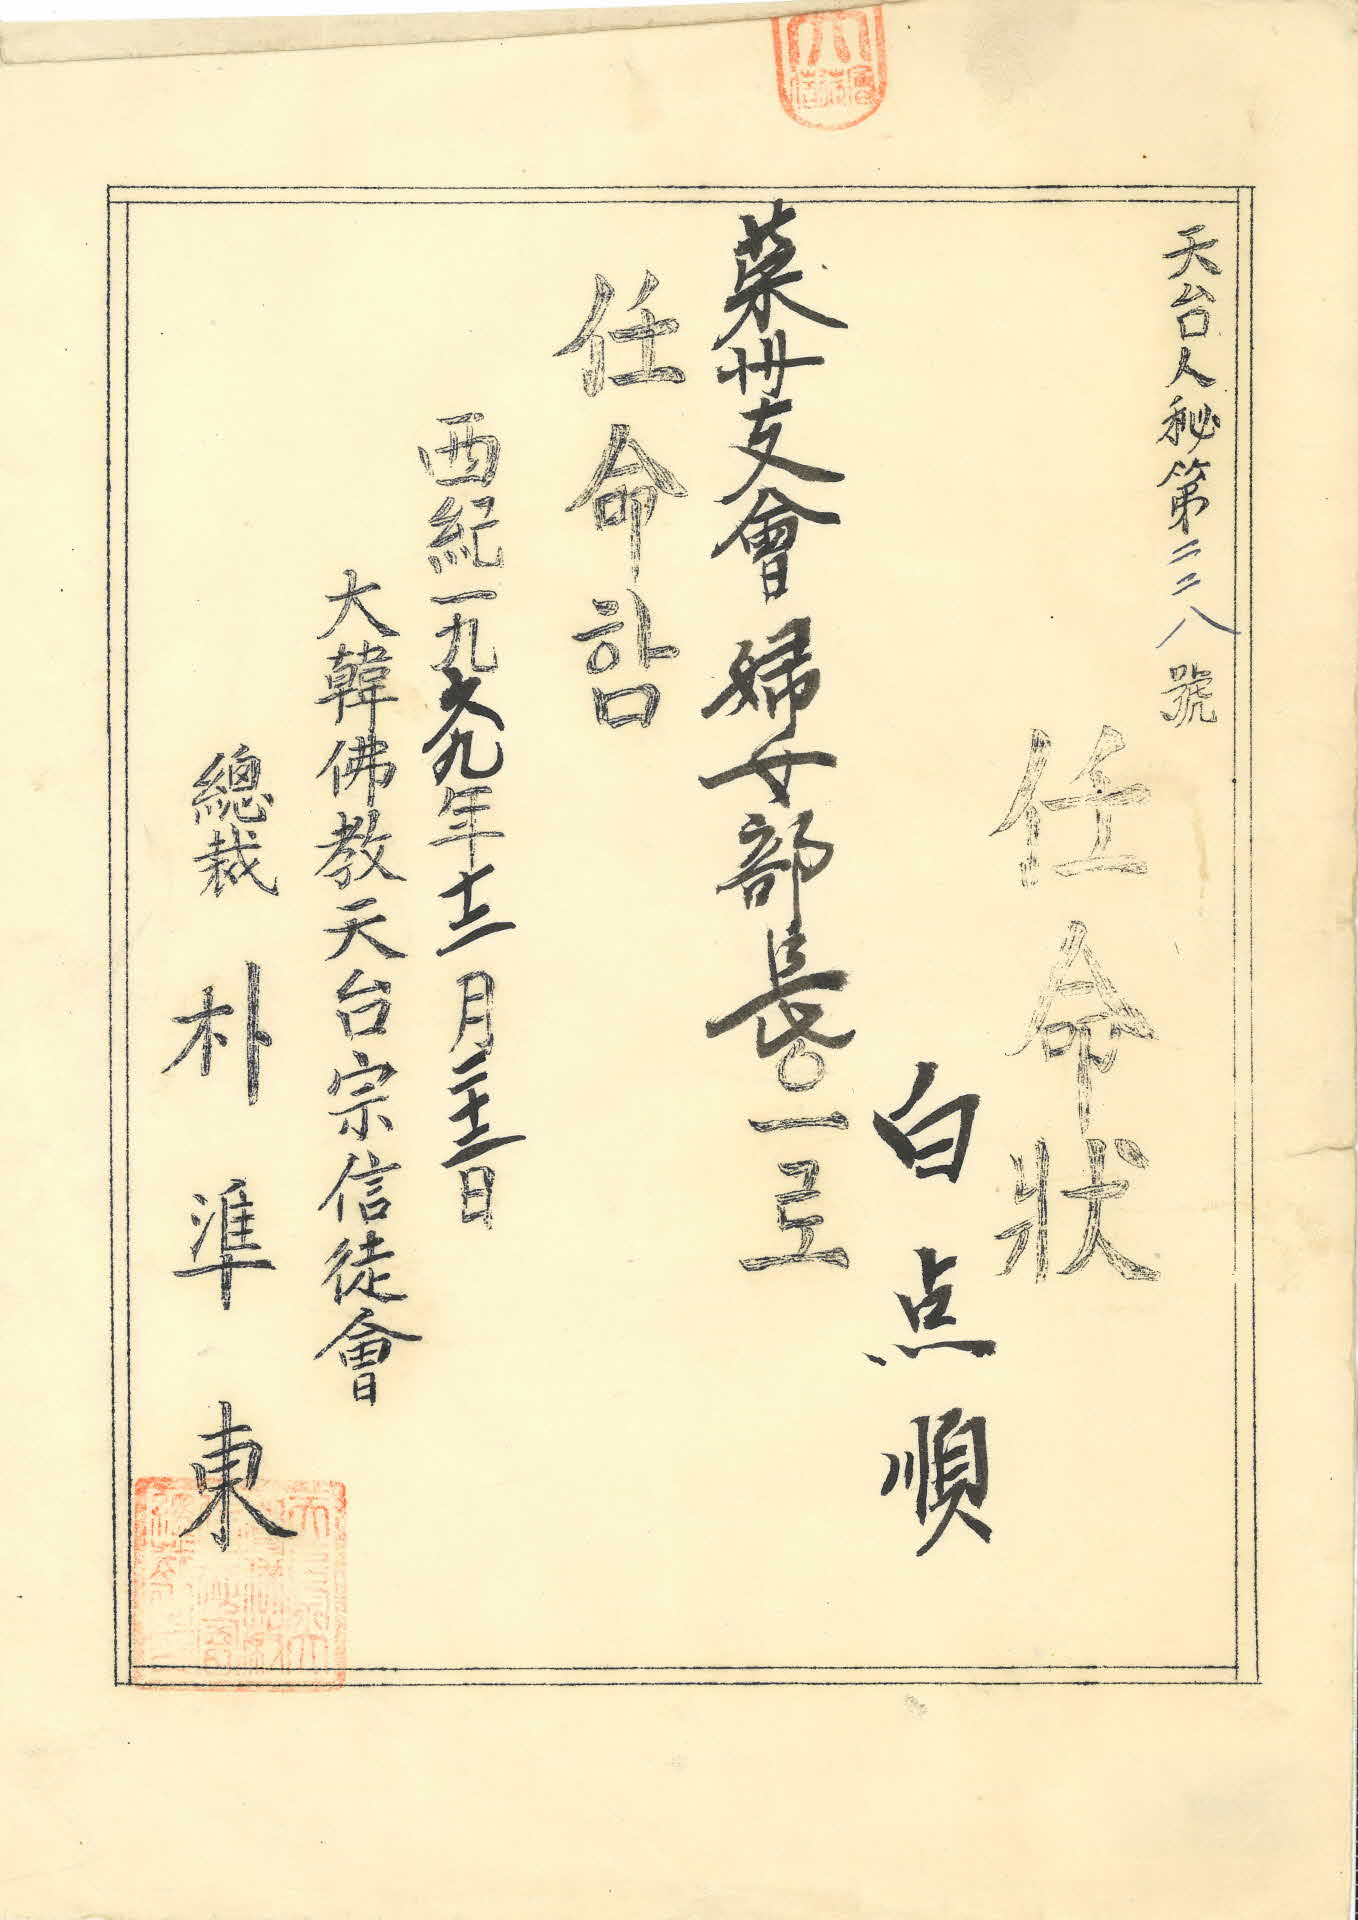 天台人秘第二二八號
任命狀
白点順
荣州支會婦女部長으로
任命함
西紀一九六九年十二月二十二日
大韓佛教天台宗信徒會
總裁 朴準東